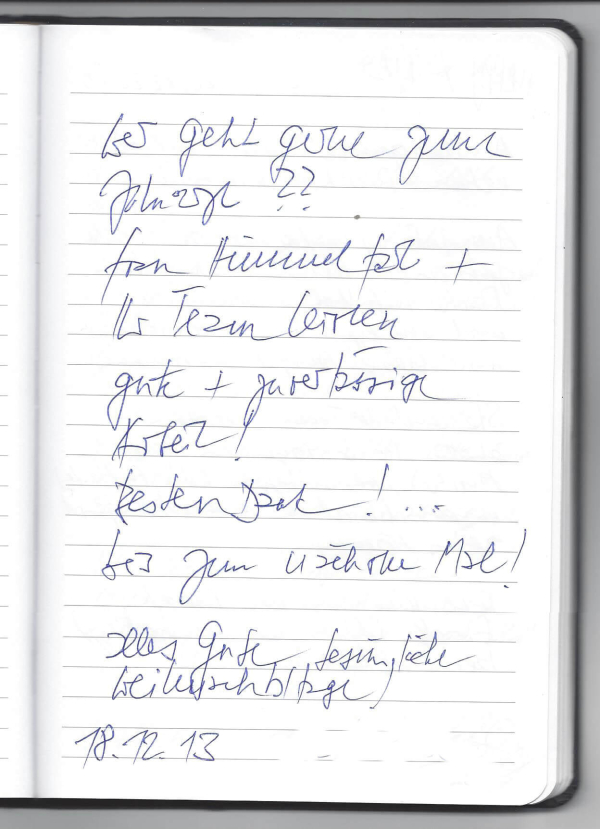 Wer geht gerne zum
Zahnarzt ??
Frau Himmel +
Ihr Team leisten
gute + zuverlässige
Arbeit!
Besten Dank! ...
bis zum nächsten Mal!
alles Gute, besinnliche
Weihnachtstage,
18.12.13